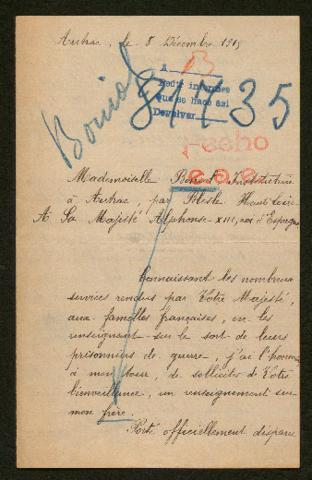 Autrac, le 8 Décembre 1915
A
B
Petit informes
que se hace así
Devolver
81735
Bouniol
Fecho
e.a.e.
Mademoiselle Institutrice
à Autrac, par Blesle Haute Loire
A Sa Majesté Alphonse XIII, roi d'Espagne
Connaissant les nombreux
services rendus par Votre Majesté,
aux familles françaises, en les
renseignant sur le sort de leurs
prisonniers de guerre, j'ai l'honneur
à mon tour, de solliciter de Votre
bienveillance, un renseignement sur
mon frère.
Porté officiellement disparu